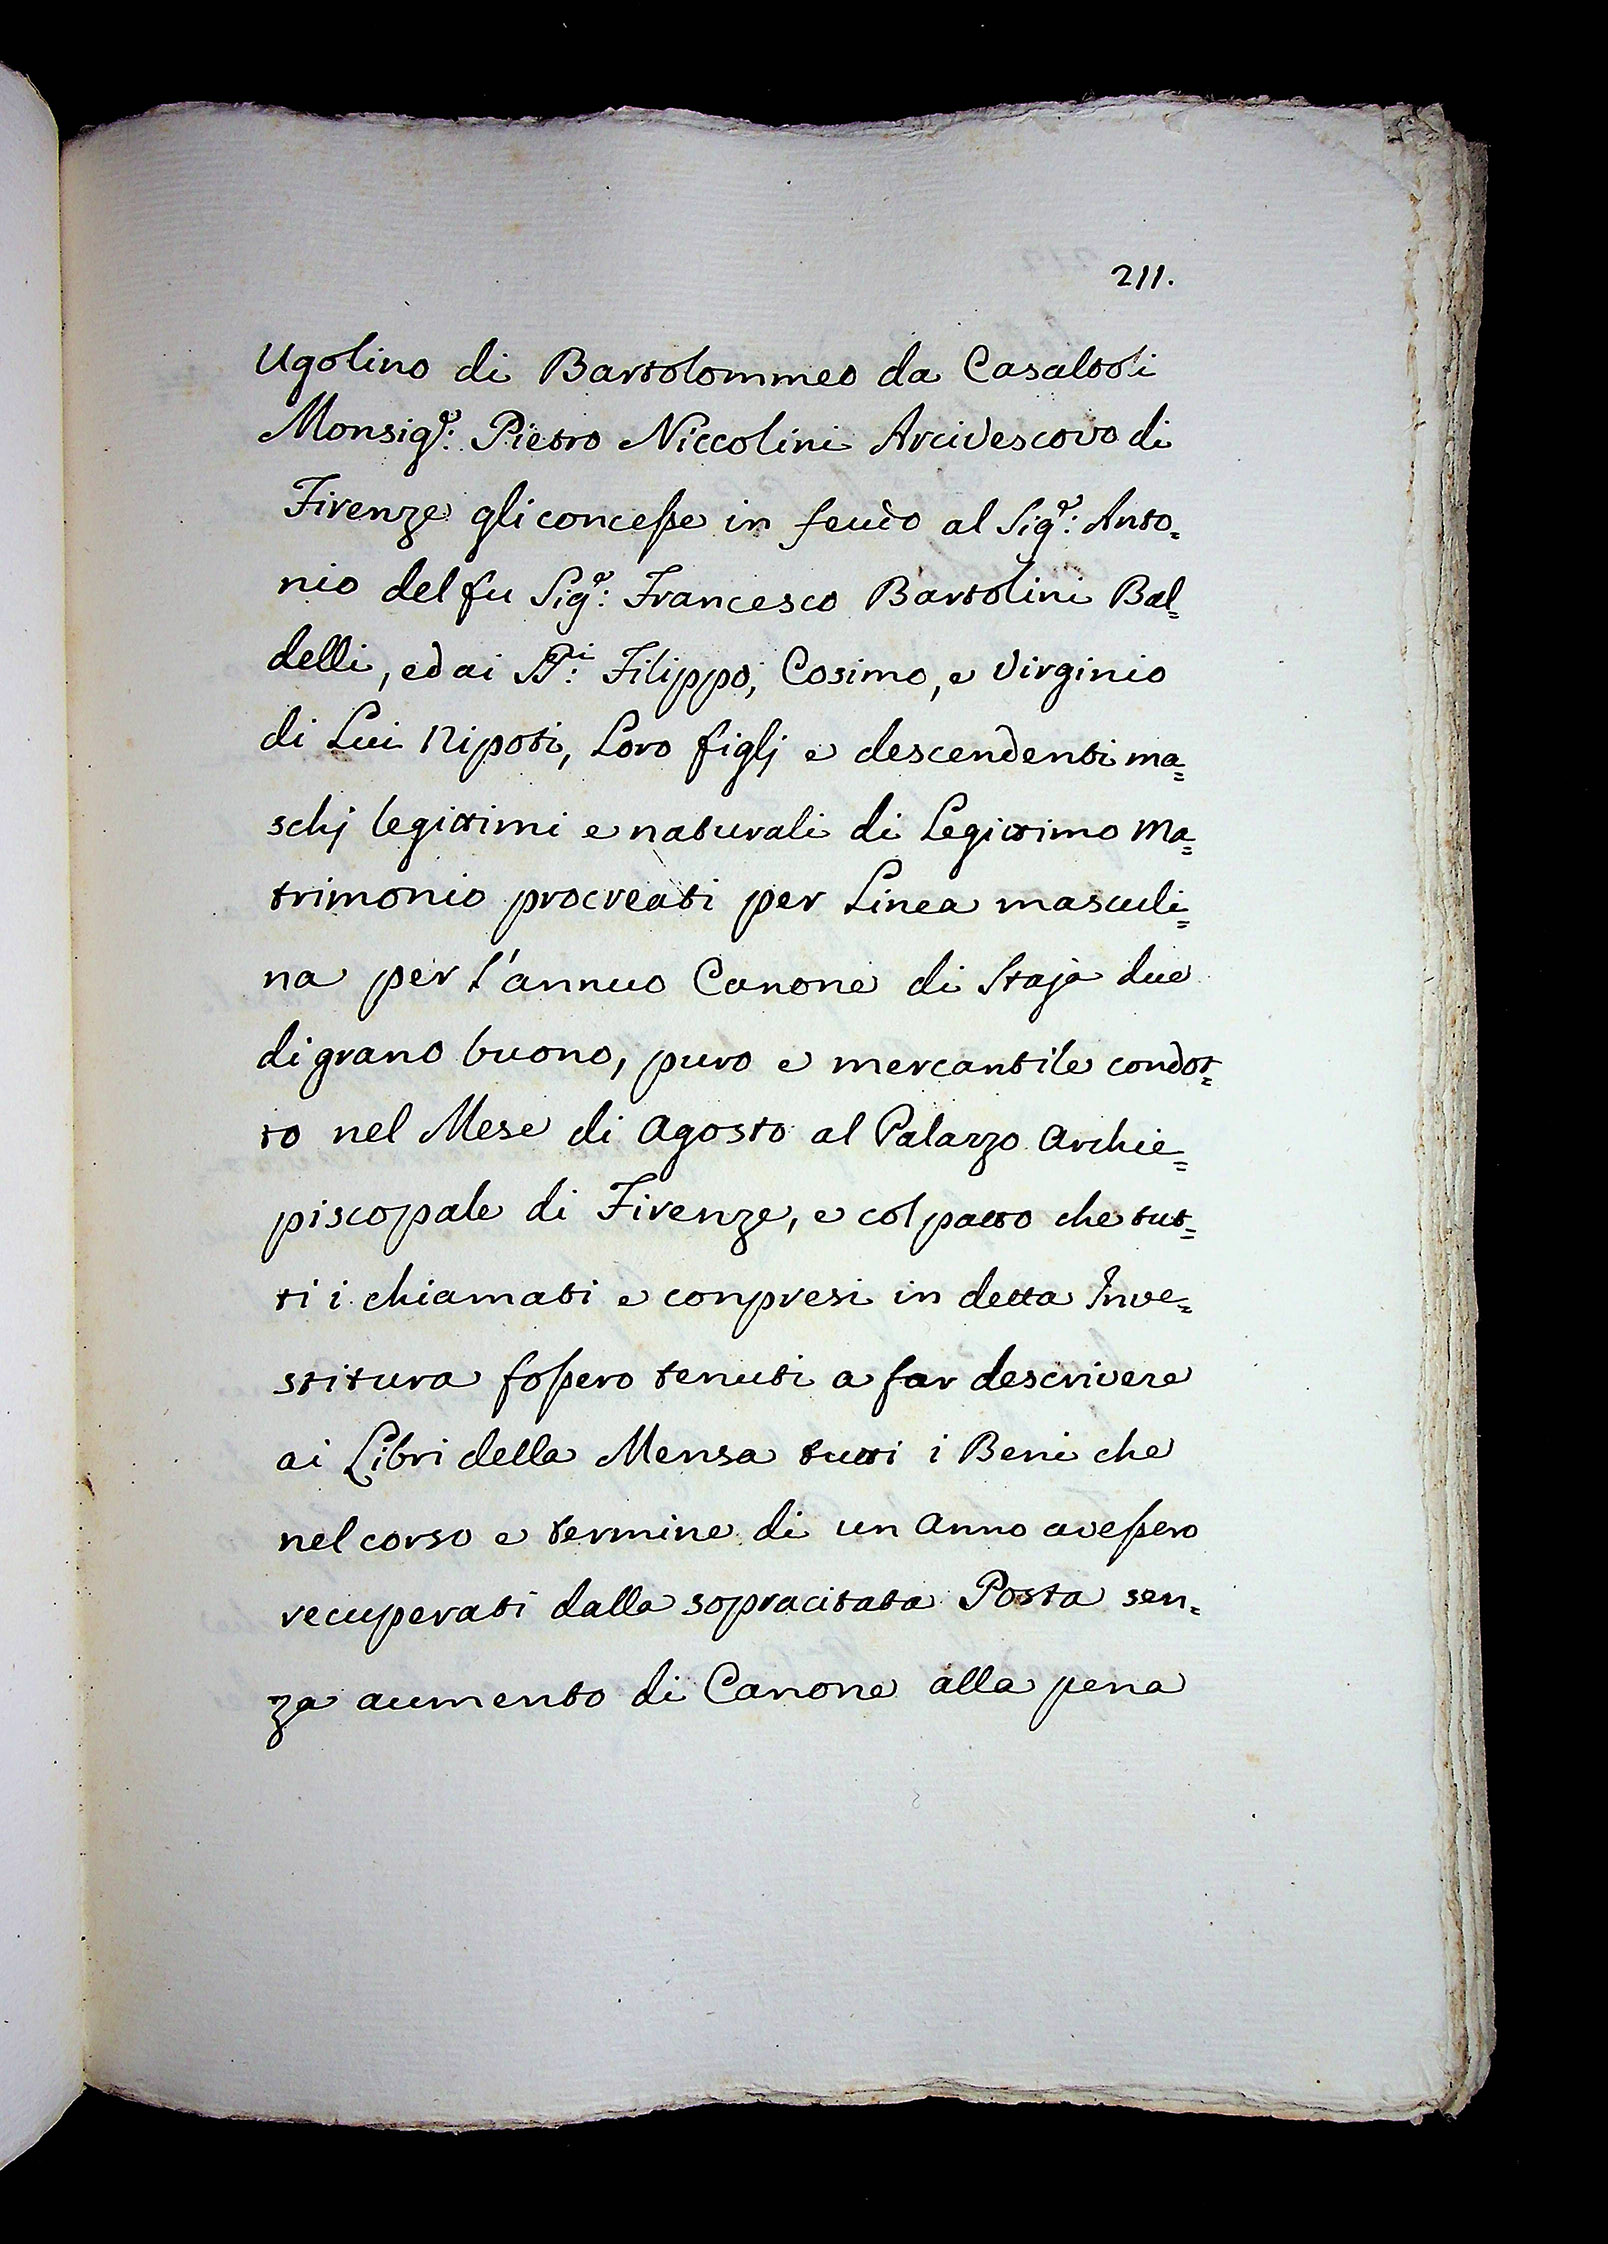 211.
Ugolino di Bartolommeo da Casaltoli
Monsig.r: Pietro Niccolini Arcivescovo di
Firenze gli concesse in feudo al Sig.r: Anto=
nio del fu Sig.r: Francesco Bartolini Bal=
delli, ed ai SS.ri: Filippo, Cosimo, e Virginio
di Lui Nipoti, Loro figlj e descendenti ma=
schj legittimi e naturali di Legittimo Ma=
trimonio procreati per Linea masculi=
na per l'annuo Canone di Staja due
di grano buono, puro e mercantile condot=
to nel Mese di Agosto al Palazzo Archie=
piscopale di Firenze, e col patto che tut=
ti i chiamati e conpresi in detta Inve=
stitura fossero tenuti a far descrivere
ai Libri della Mensa tutti i Beni che
nel corso e termine di un Anno avessero
recuperati dalla sopracitata Posta sen=
za aumento di Canone alla pena